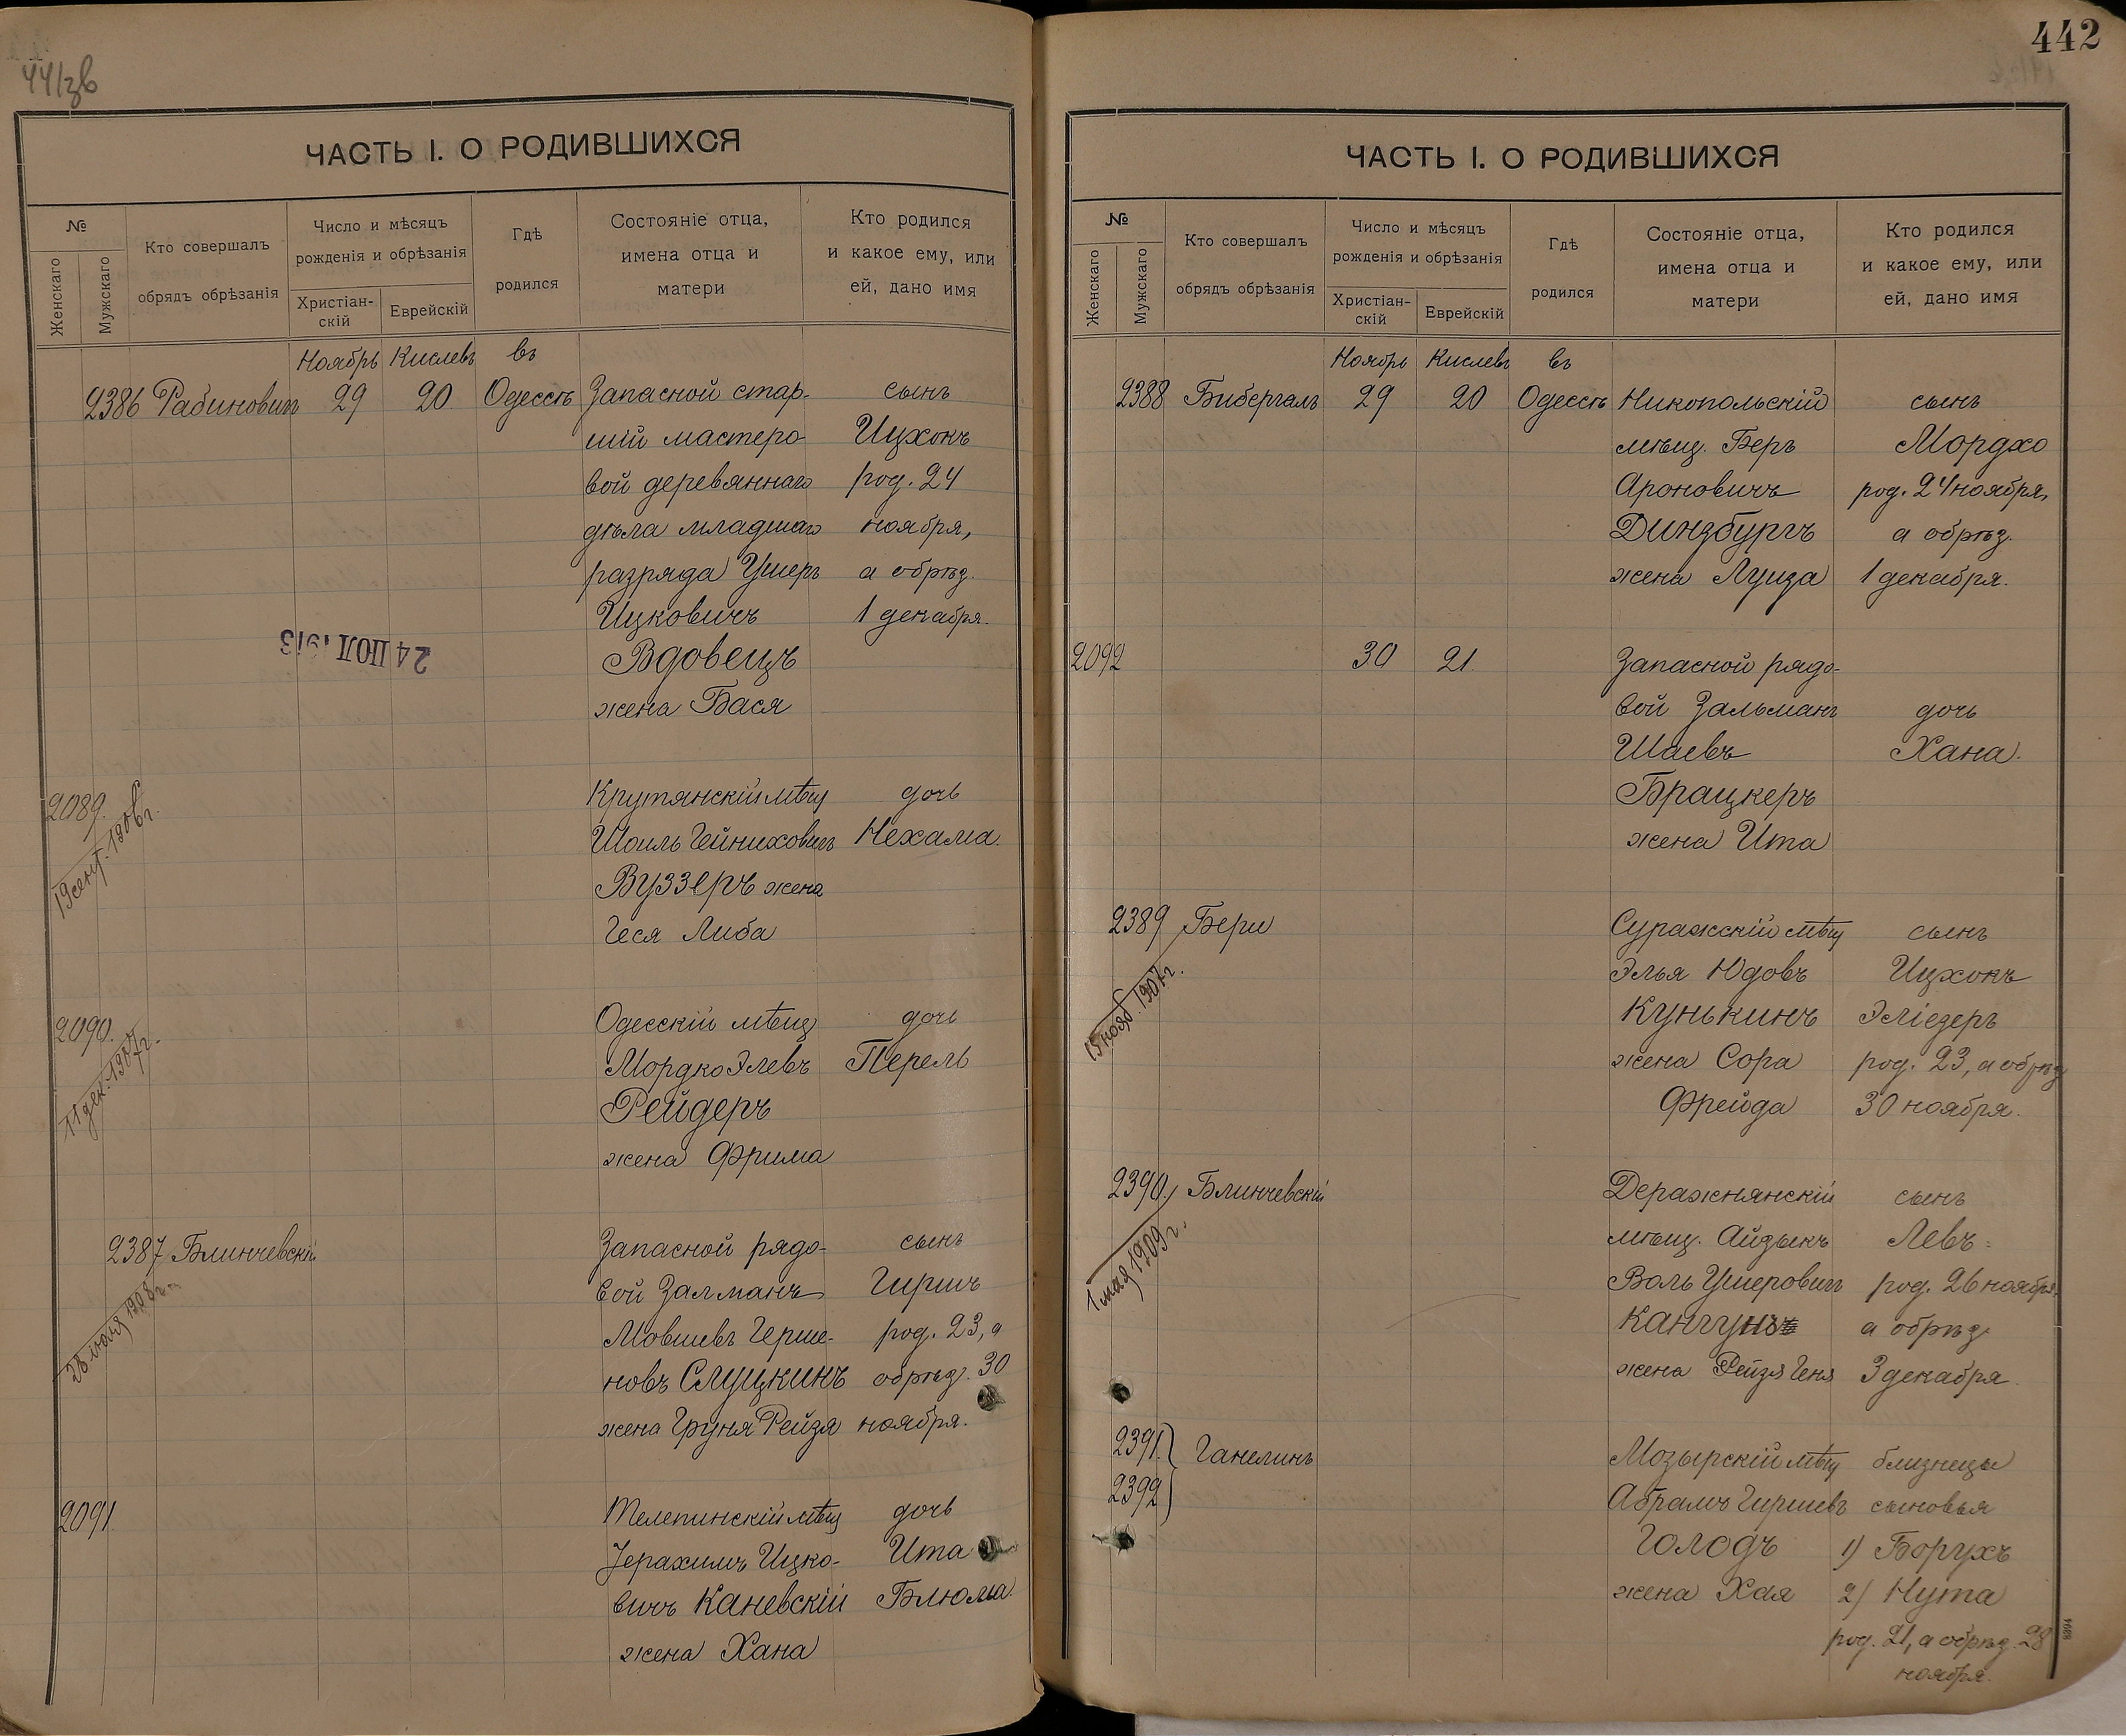 44/зв
ЧАСТЬ I. О РОДИВШИХСЯ
№
Женскаго
Мужскаго
Кто совершалъ
обрядъ обрѣзанія
Число и мѣсяцъ
рожденія и обрѣзанія
Христіан-
скій
Еврейскій
Гдѣ
родился
Состояніе отца,
имена отца и
матери
Кто родился
и какое ему, или
ей, дано имя
Ноябрь Кислевъ въ
2386 Рабиновичъ 29 20 Одессѣ Запасной стар- сынъ
шій мастеро- Ицхокъ
вой деревяннаго род. 24
дѣла младшаго ноября,
разряда Ушеръ а обрѣз.
Ицковичъ 1 декабря.
24 ІЮЛ 1913
Вдовецъ
жена Бася
2089. Крутянскій мѣщ дочь
19 сент. 1906 г.
Шоиль Гейниховичъ Нехама.
Вуззеръ жена
Геся Либа
2090. Одесскій мѣщ дочь
11 дек. 1907 г.
Мордко Элевъ Перель
Рейдеръ
жена Фрима
2387 Блинчевскій Запасной рядо- сынъ
28 1908 г.
вой Залманъ Гиршъ
Мовшевъ Герше- род. 23, а
новъ Слуцкинъ обрѣз. 30
жена Груня Рейзя ноября.
2091 Телепинскій мѣщ дочь
Іерахимъ Ицко- Ита
вичъ Каневскій Блюма.
жена Хана
442
ЧАСТЬ I. О РОДИВШИХСЯ
№
Женскаго
Мужскаго
Кто совершалъ
обрядъ обрѣзанія
Число и мѣсяцъ
рожденія и обрѣзанія
Христіан-
скій
Еврейскій
Гдѣ
родился
Состояніе отца,
имена отца и
матери
Кто родился
и какое ему, или
ей, дано имя
Ноябрь Кислевъ въ
2388 Бибергалъ 29 20 Одессѣ Никопольскій сынъ
мѣщ. Беръ Мордхо
Ароновичъ род. 24 ноября,
Динзбургъ а обрѣз.
жена Луиза 1 декабря.
2092 30 21. Запасной рядо-
вой Зальманъ дочь
Шаевъ Хана.
Брацкеръ
жена Ита
2389 Бери Суражскій мѣщ сынъ
15 нояб. 1907 г.
Элья Юдовъ Ицхокъ
Кунькинъ Эліезеръ
жена Сора род. 23, а обрѣз
Фрейда 30 ноября.
2390. Блинчевскій Деражнянскій сынъ
1 мая 1909 г.
мѣщ. Айзыкъ Левъ
Воль Ушеровичъ род. 26 ноября.
а обрѣз.
жена Рейзя Геня 3 декабря.
2391. Ганелинъ Мозырскій мѣщ близнецы
2392 Абрамъ Гиршевъ сыновья
Голодъ 1) Борухъ
жена Хая 2) Нута
род. 21, а обрѣз. 28
ноября.